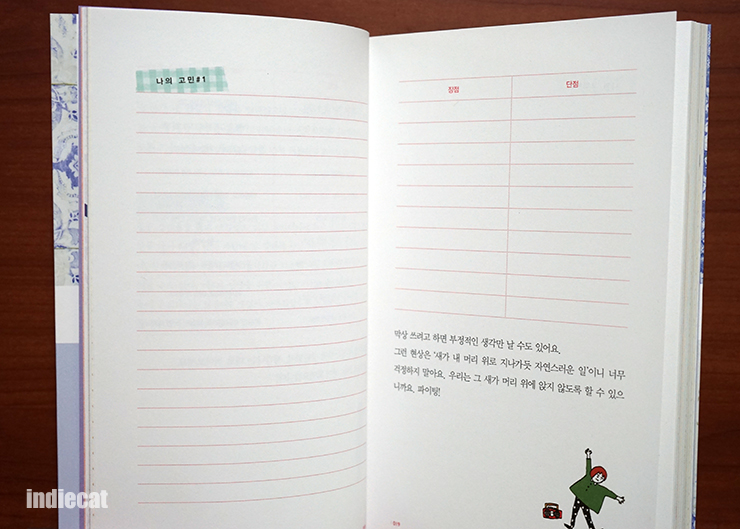 나의 고민#1
장점 단점
막상 쓰려고 하면 부정적인 생각만 날 수도 있어요.
그런 현상은 '새가 내 머리 위로 지나가듯 자연스러운 일'이니 너무
걱정하지 말아요. 우리는 그 새가 머리 위에 앉지 않도록 할 수 있으
니까요. 파이팅!
indiecat